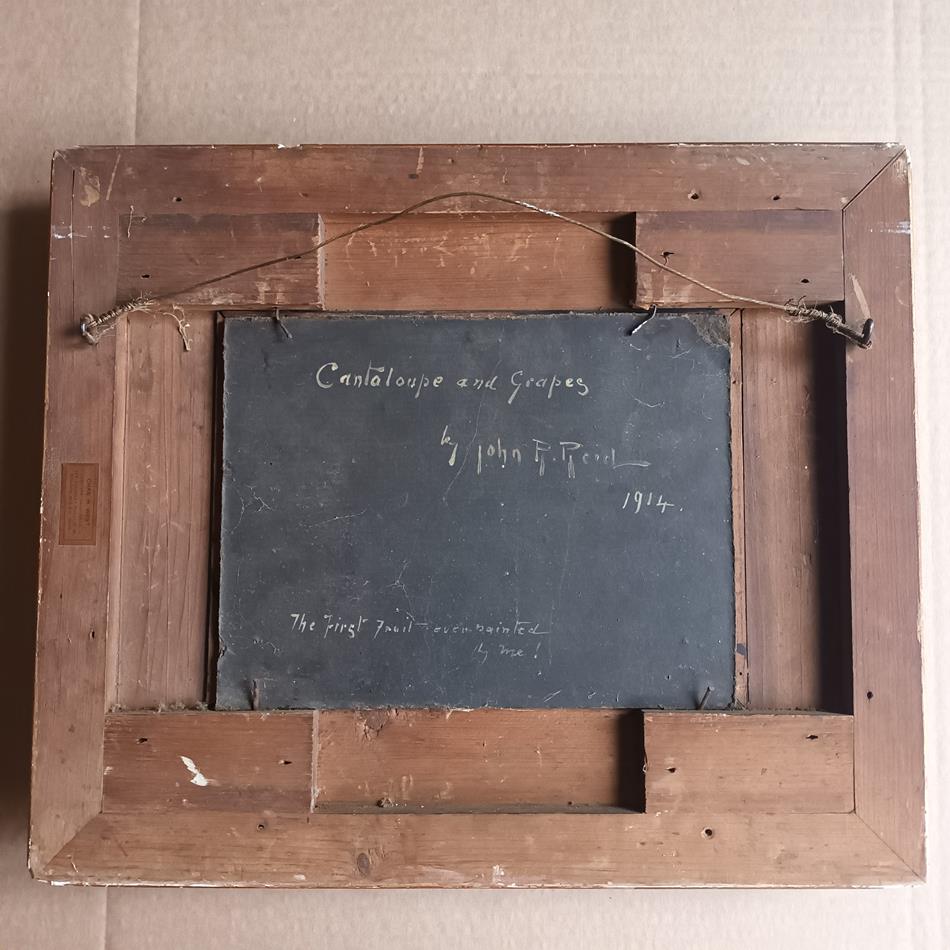 Cantaloupe and Grapes
by John R. Reid
1914.
The First Fruit - ever painted
by me!